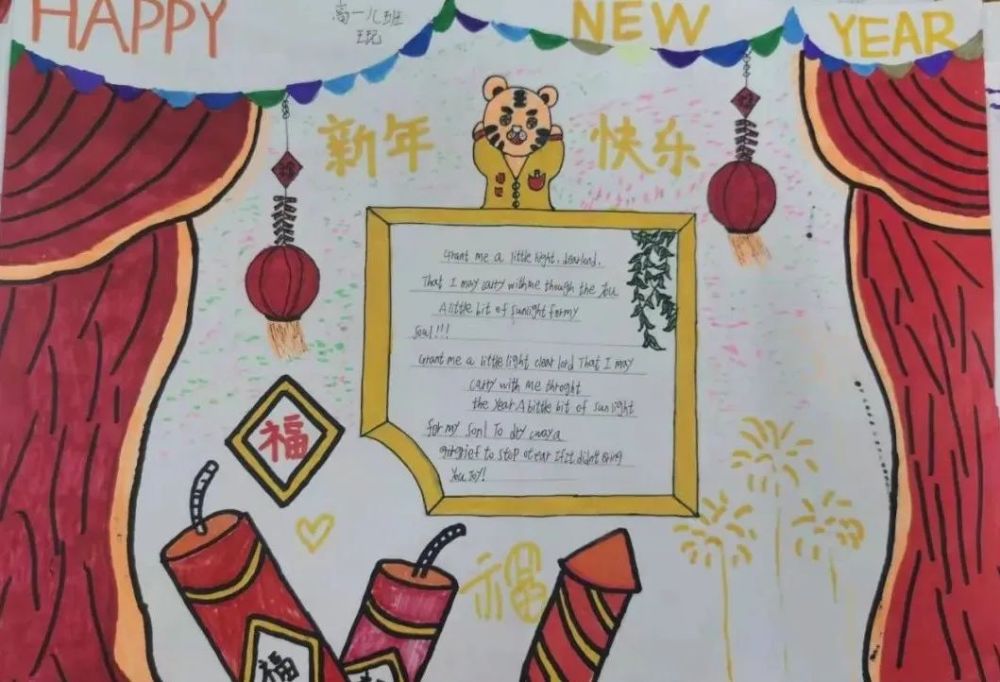 HAPPY NEW YEAR
高一八班
新年快乐
福
Grant me a little light, dear lord,
That I may carry with me though the
A little bit of sunlight for my
Soul!!!
Grant me a little light clear lord That I may
carry with me throght
the Year A bittle bit of sunlight
for my Sonl To dry
grief to stop
You Joy!
福
福
福